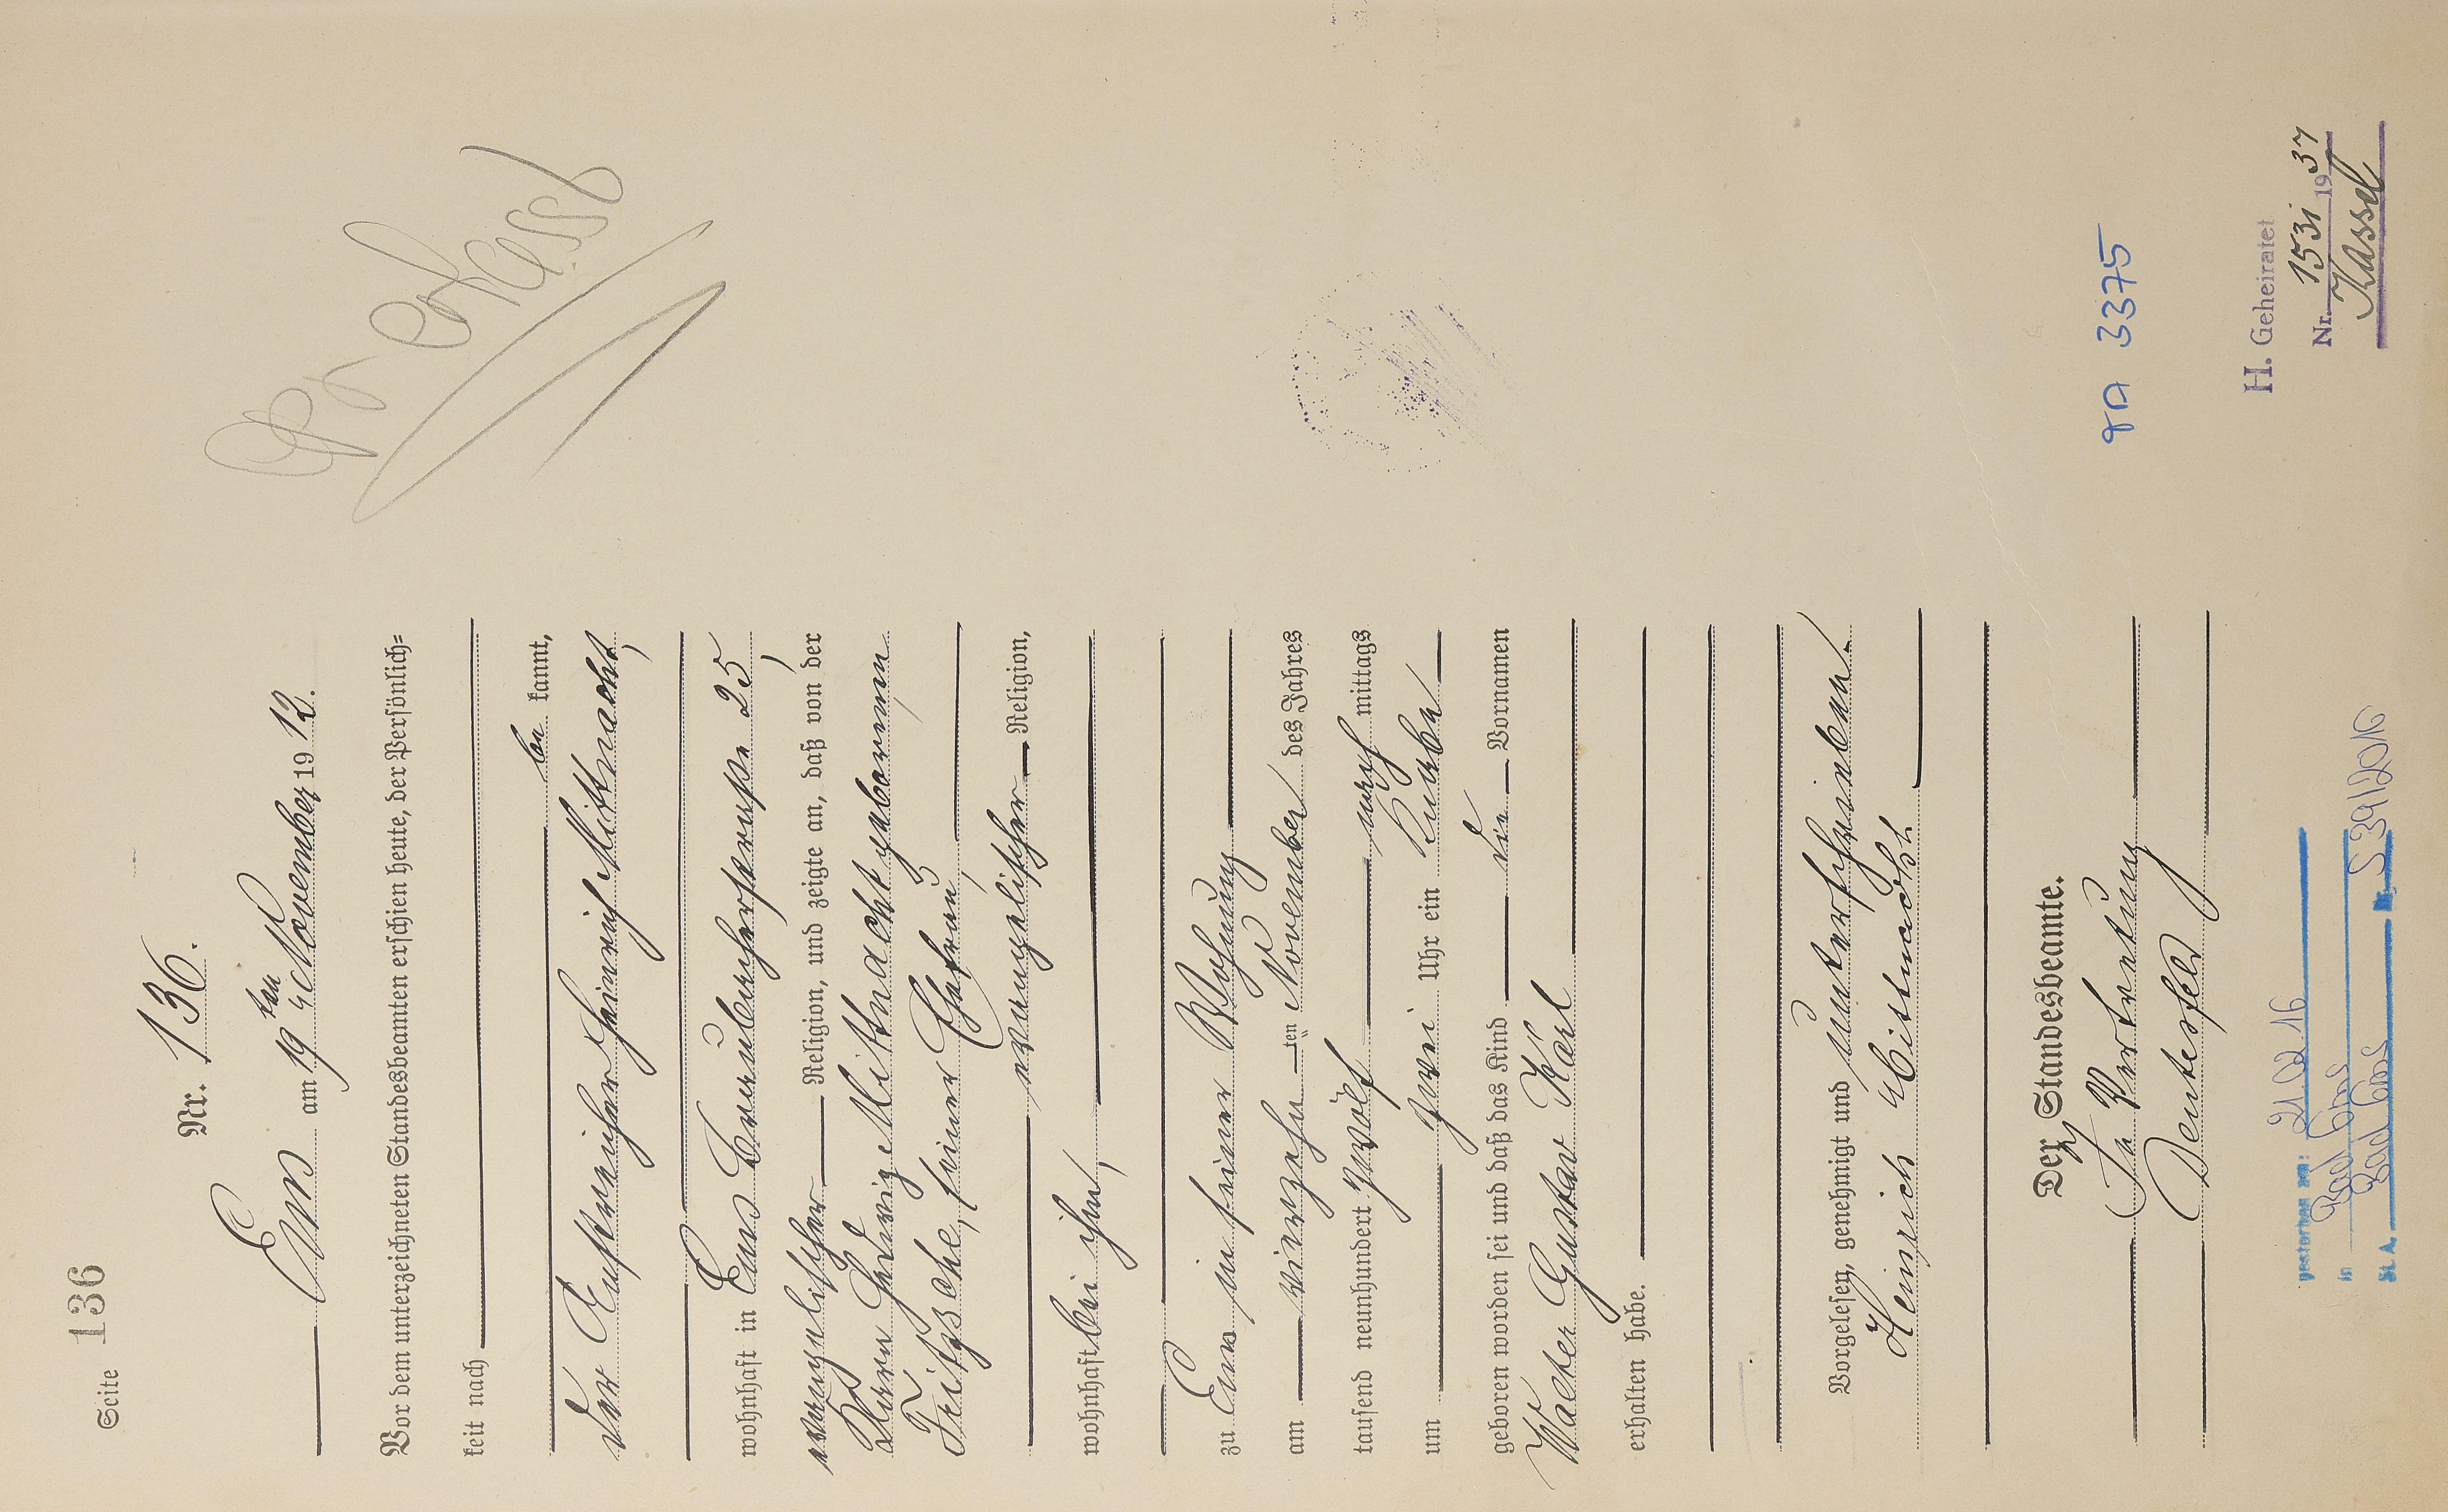 Seite 136
Nr. 136.
Ems am 19ten November 1912.
Vor dem unterzeichneten Standesbeamten erschien heute, der Persönlich=
keit nach
be kannt,
der Anstreicher Heinrich Mittnacht,
wohnhaft in Ems Braubacherstraße 25,
evangelischer Religion, und zeigte an, daß von der
Hedwig Mittnacht geborenen
Fritzsche, seiner Ehefrau,
evangelischer Religion,
wohnhaft bei ihm,
zu Ems in seiner Wohnung
am vierzehn ten November des Jahres
tausend neunhundert zwölf nach mittags
um zwei Uhr ein Knabe
geboren worden sei und daß das Kind die Vornamen
Walter Gustav Karl
erhalten habe.
Vorgelesen, genehmigt und unterschrieben.
Heinrich Mittnacht
Der Standesbeamte.
In Vertretung
gestorben am: 21 02 16
in Bad Ems
St. A. Bad Ems Nr. S 39/2016
3375
H. Geheiratet
Nr. 1531 1937
Kassel